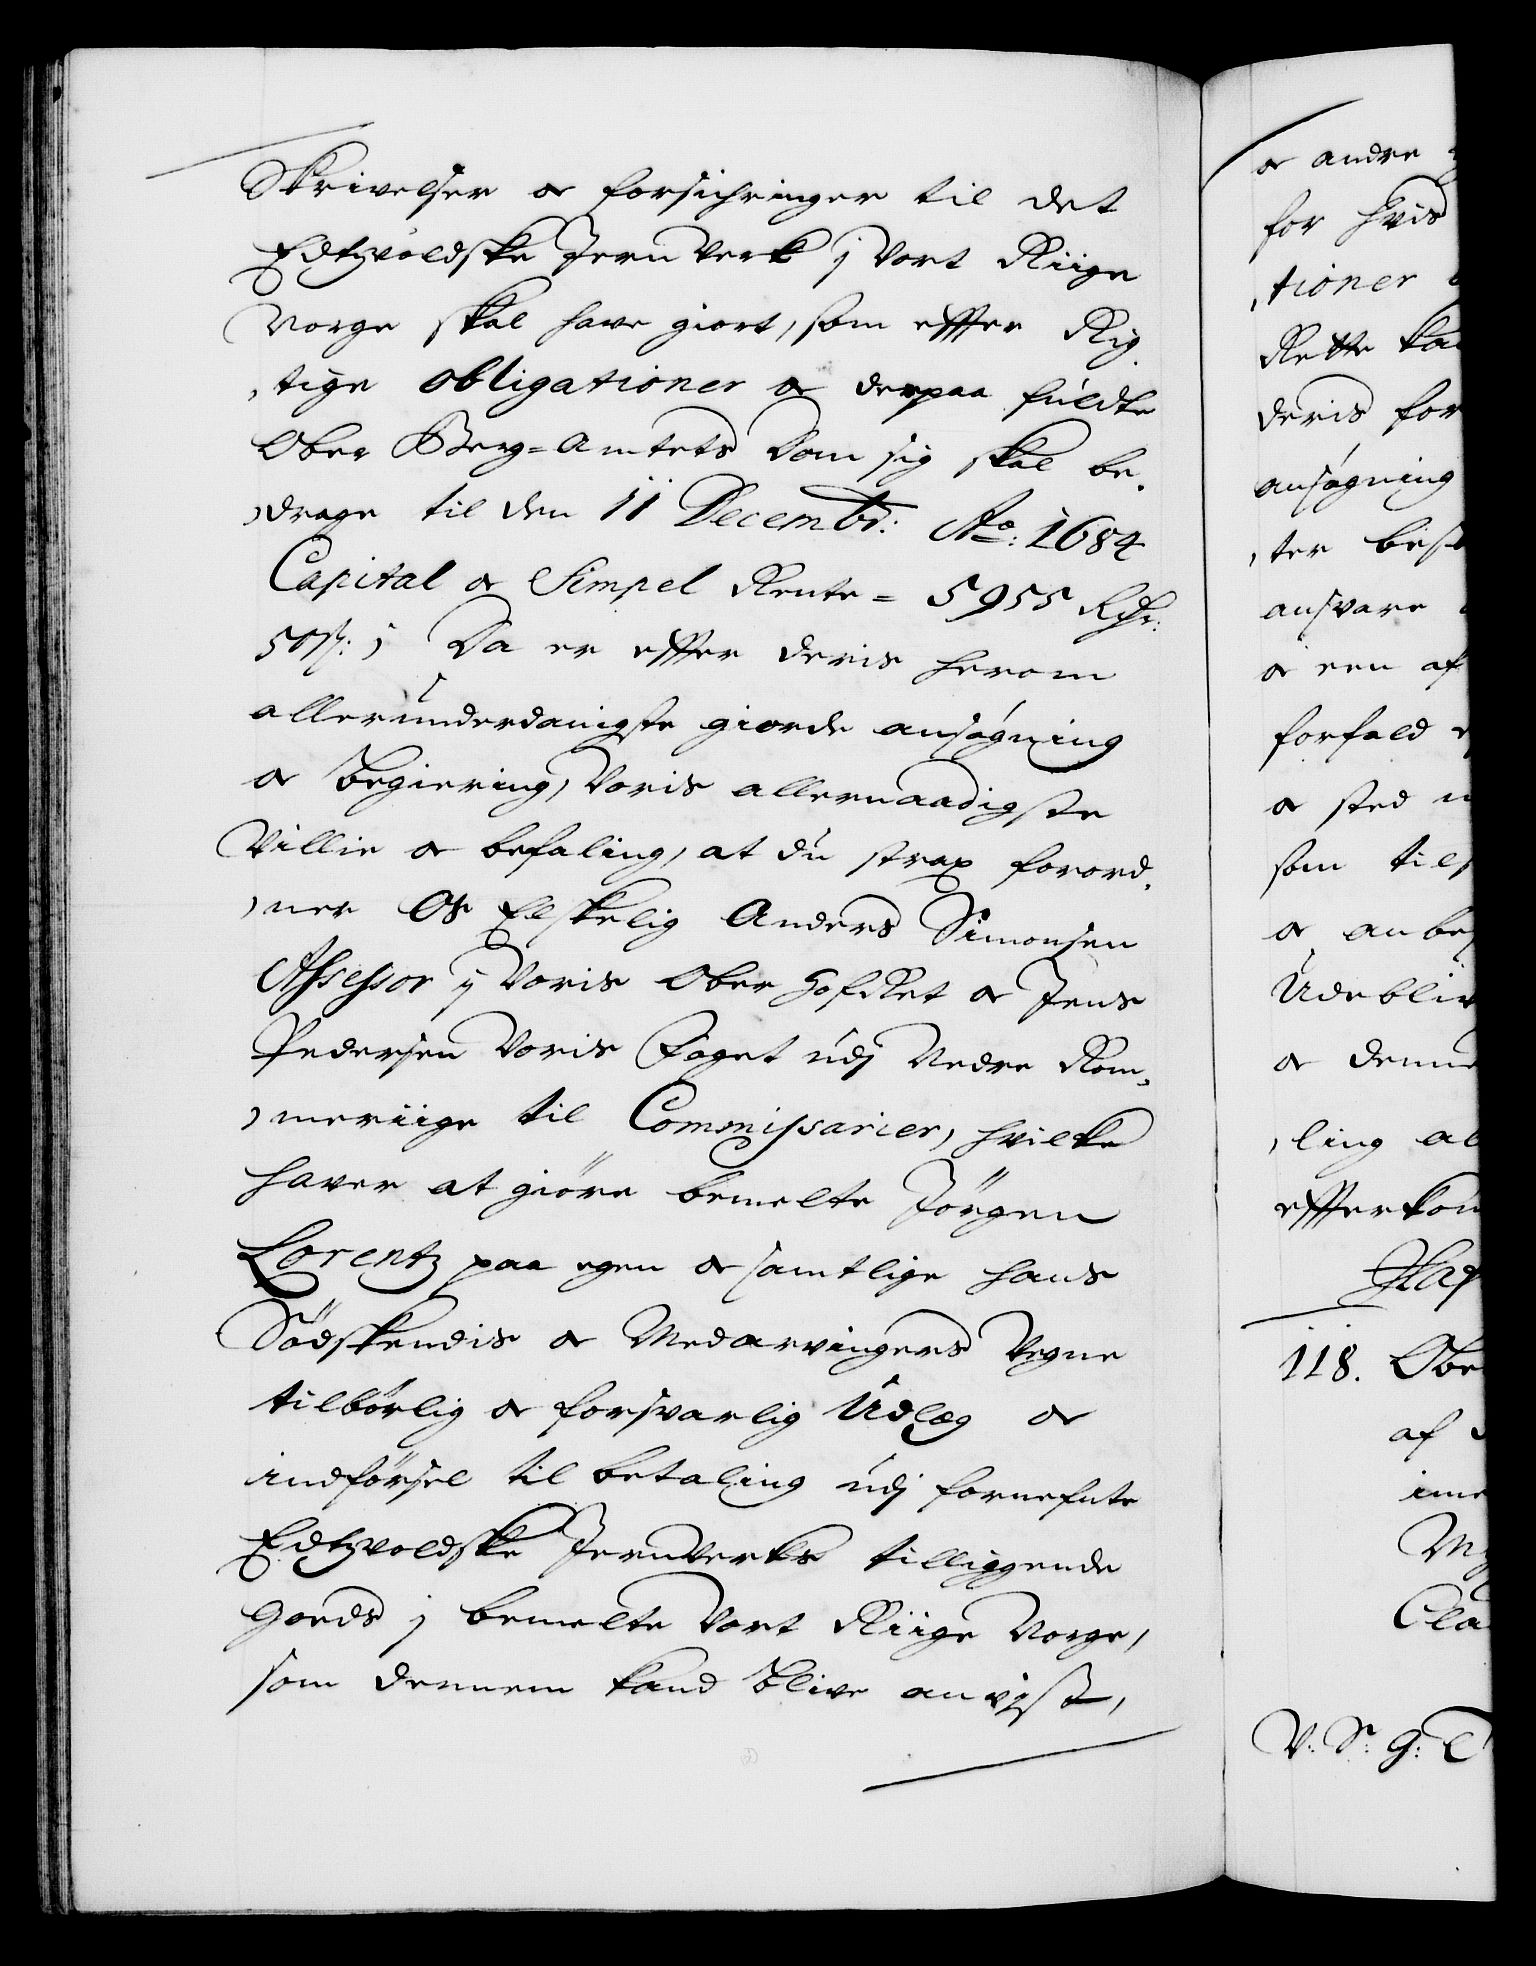 Skrivelser og forsichringer til det
Edtzvoldske Jern Verk j Vort Riige
Norge skal have giort, som effter Rig-
tige obligationer og derpaa fuldte
Ober Berg=Amtets Dom sig skal be-
drage til den 11 Decembr: Ao: 1684
Capital og Simpel Rente = 5955 Rdr:
50 s: ; Da er effter deris herom
allerunderdanigste giorde ansøgning
og begiering, Voris allernaadigste
Villie og befaling, at du strax forord-
ner Os Elskelig Anders Simonsen
Assessor j Voris Ober Hof Ret og Jens
Pedersen Voris Foget udj Nedre Rom-
meriige til Commissarier, hvilke
haver at giöre bemelte Jörgen
Lorentz paa egen og samtlige hans
Södskendis og Medarvingers Vegne
tilbörlig og forsvarlig Udlæg og
indförsel til betaling udj fornefnte
Edtzvoldske JernVerks tilliggende
Goeds j bemelte Vort Riige Norge,
som dennem kand blive anvjst,
og andre
for hvis
tioner
Rette
deris for
ansøgning
ter
ansvare
og een af
forfald
og sted
som
og
og
ling
118.
af